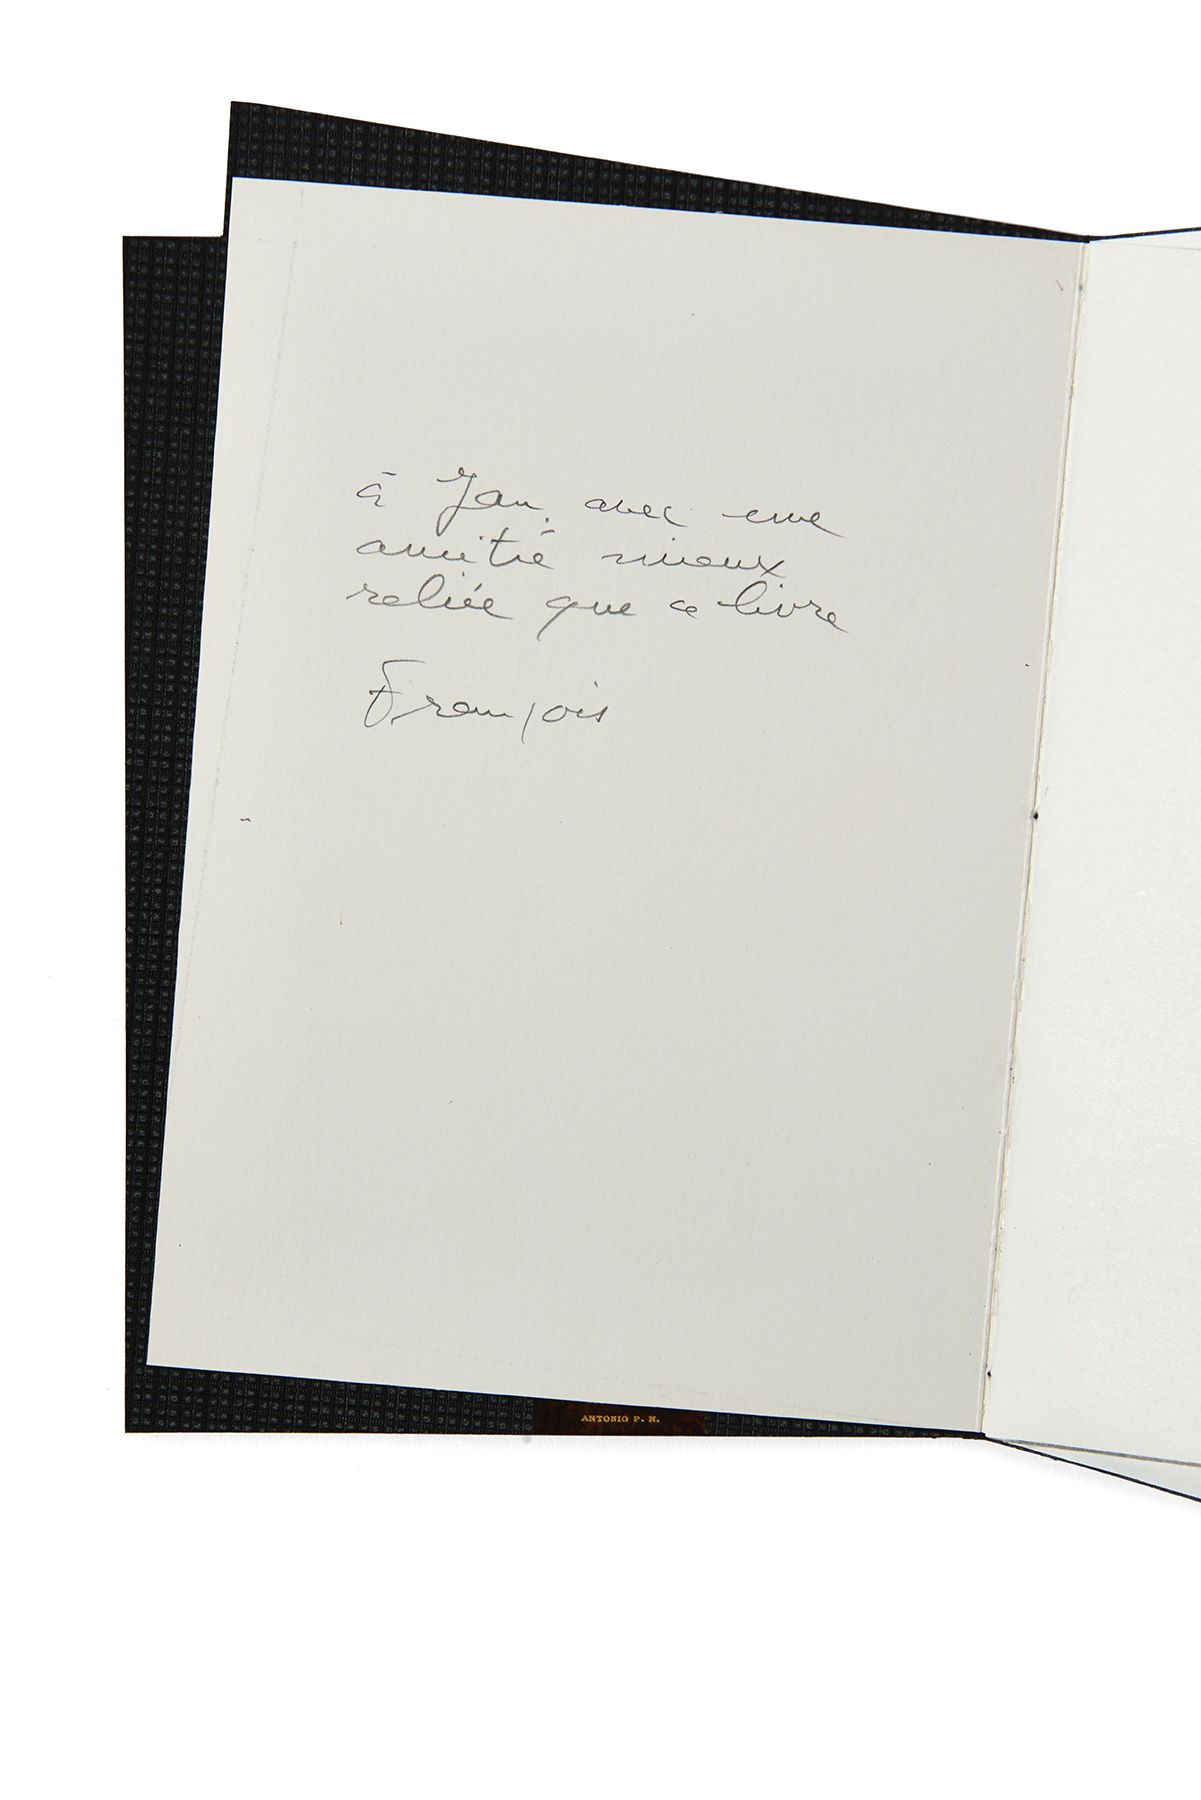 à Jan, avec une
amitié mieux
reliée que ce livre
François
ANTONIO P. N.